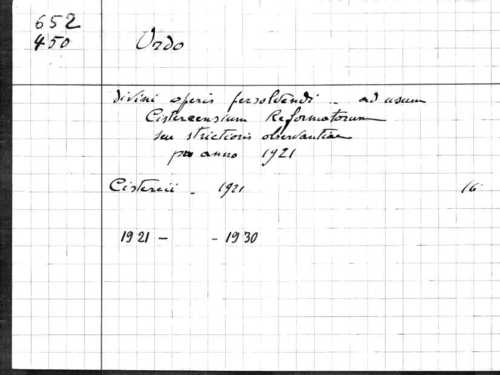 652
450
Ordo
divini operis persolvendi _ ad usum
Cisterciensium Reformatorum
seu strictioris observantiae
pro anno 1921
Cistercii _ 1921 16
1921 - - 1930